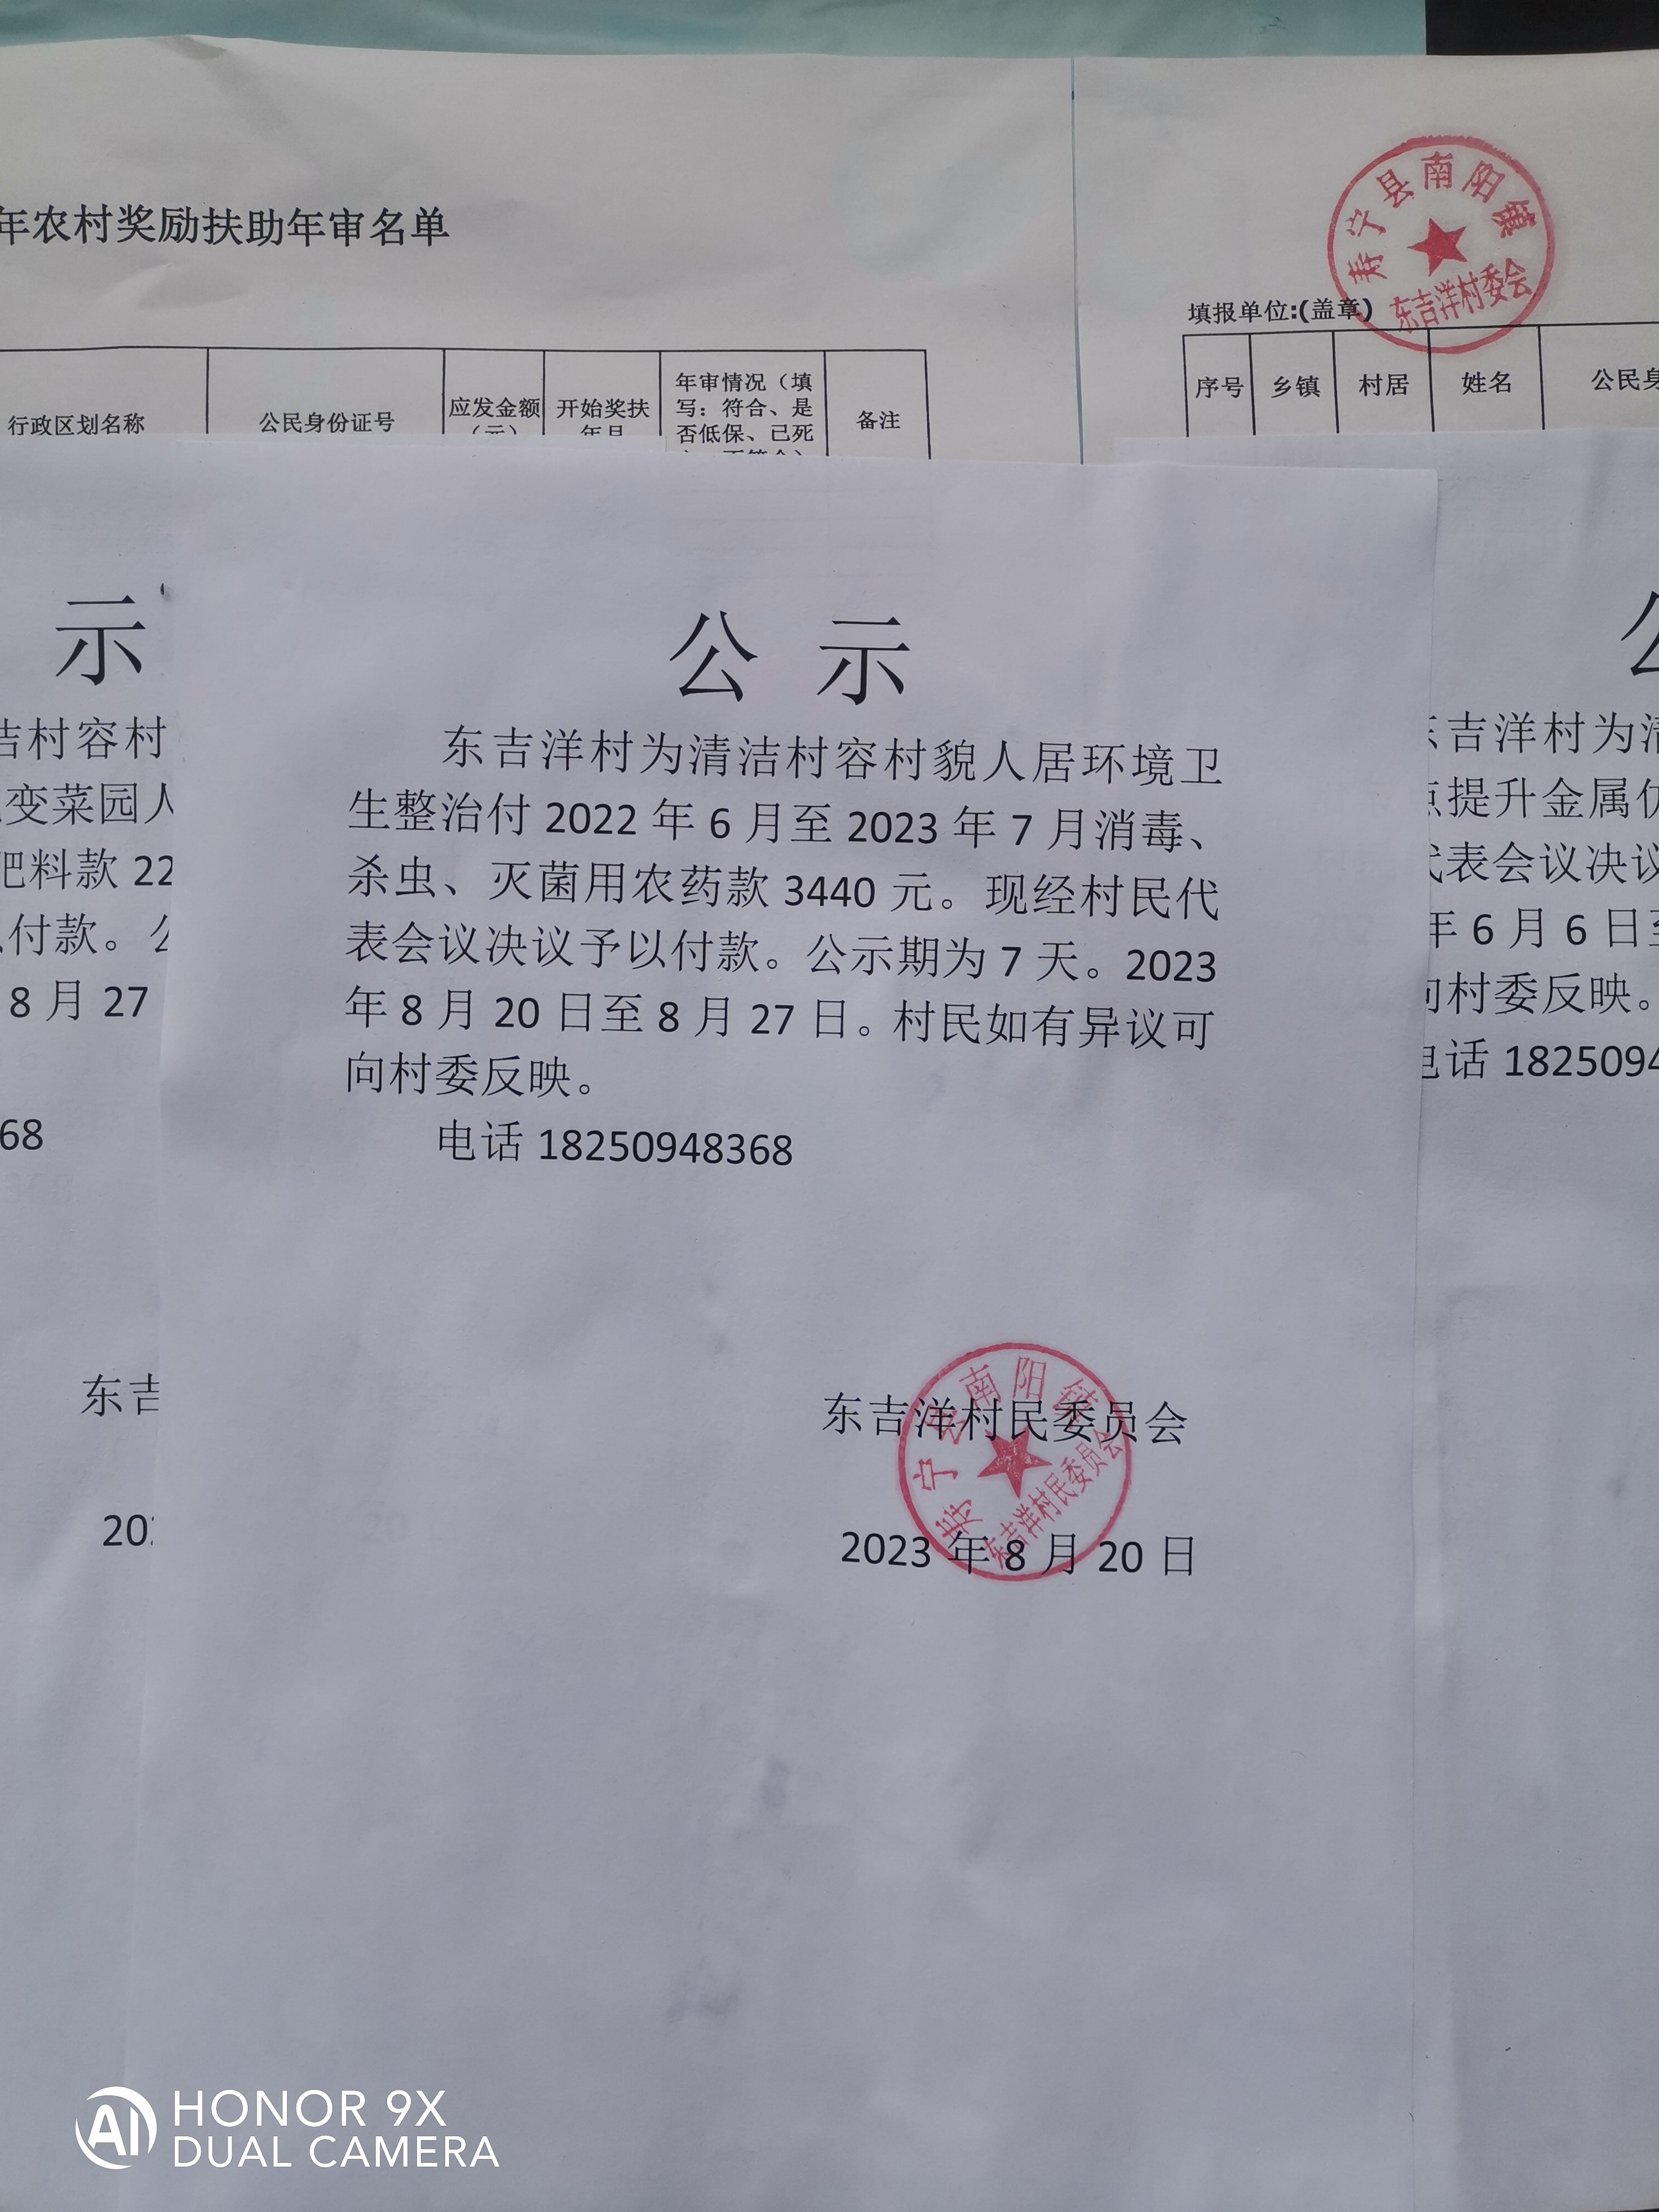 年农村奖励扶助年审名单
寿宁县南阳镇
东吉洋村委会
填报单位:(盖章)
行政区划名称 公民身份证号 应发金额 开始奖扶 年审情况（填 备注
写：符合、是
否低保、已死
序号 乡镇 村居 姓名 公民身
示
洁村容村
变菜园人
肥料款 22
付款。公
8 月 27
68
东吉
202
公 示
东吉洋村为清洁村容村貌人居环境卫
生整治付 2022 年 6 月至 2023 年 7 月消毒、
杀虫、灭菌用农药款 3440 元。现经村民代
表会议决议予以付款。公示期为 7 天。2023
年 8 月 20 日至 8 月 27 日。村民如有异议可
向村委反映。
电话 18250948368
东吉洋村民委员会
寿宁县南阳镇
东吉洋村民委员会
2023 年 8 月 20 日
公
东吉洋村为清
点提升金属仿
代表会议决议
年 6 月 6 日至
向村委反映。
电话 1825094
AI HONOR 9X
DUAL CAMERA